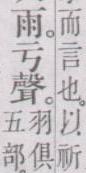 而言也。以祈
雨。亏聲。羽俱
五部